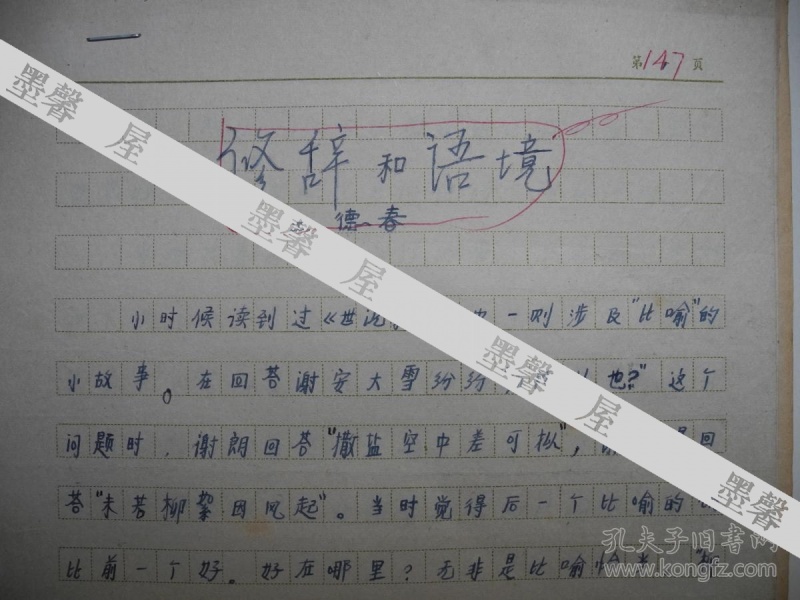 第147页
修辞和语境
德春
小时候读到过《世说 一则涉及"比喻"的
小故事。在回答谢安大雪纷纷 也?"这个
问题时,谢朗回答"撒盐空中差可拟", 回
答"未若柳絮因风起"。当时觉得后一个比喻的
比前一个好。好在哪里?无非是比喻
墨馨屋
墨馨屋
墨馨屋
墨馨屋
孔夫子旧书网
www.kongfz.com